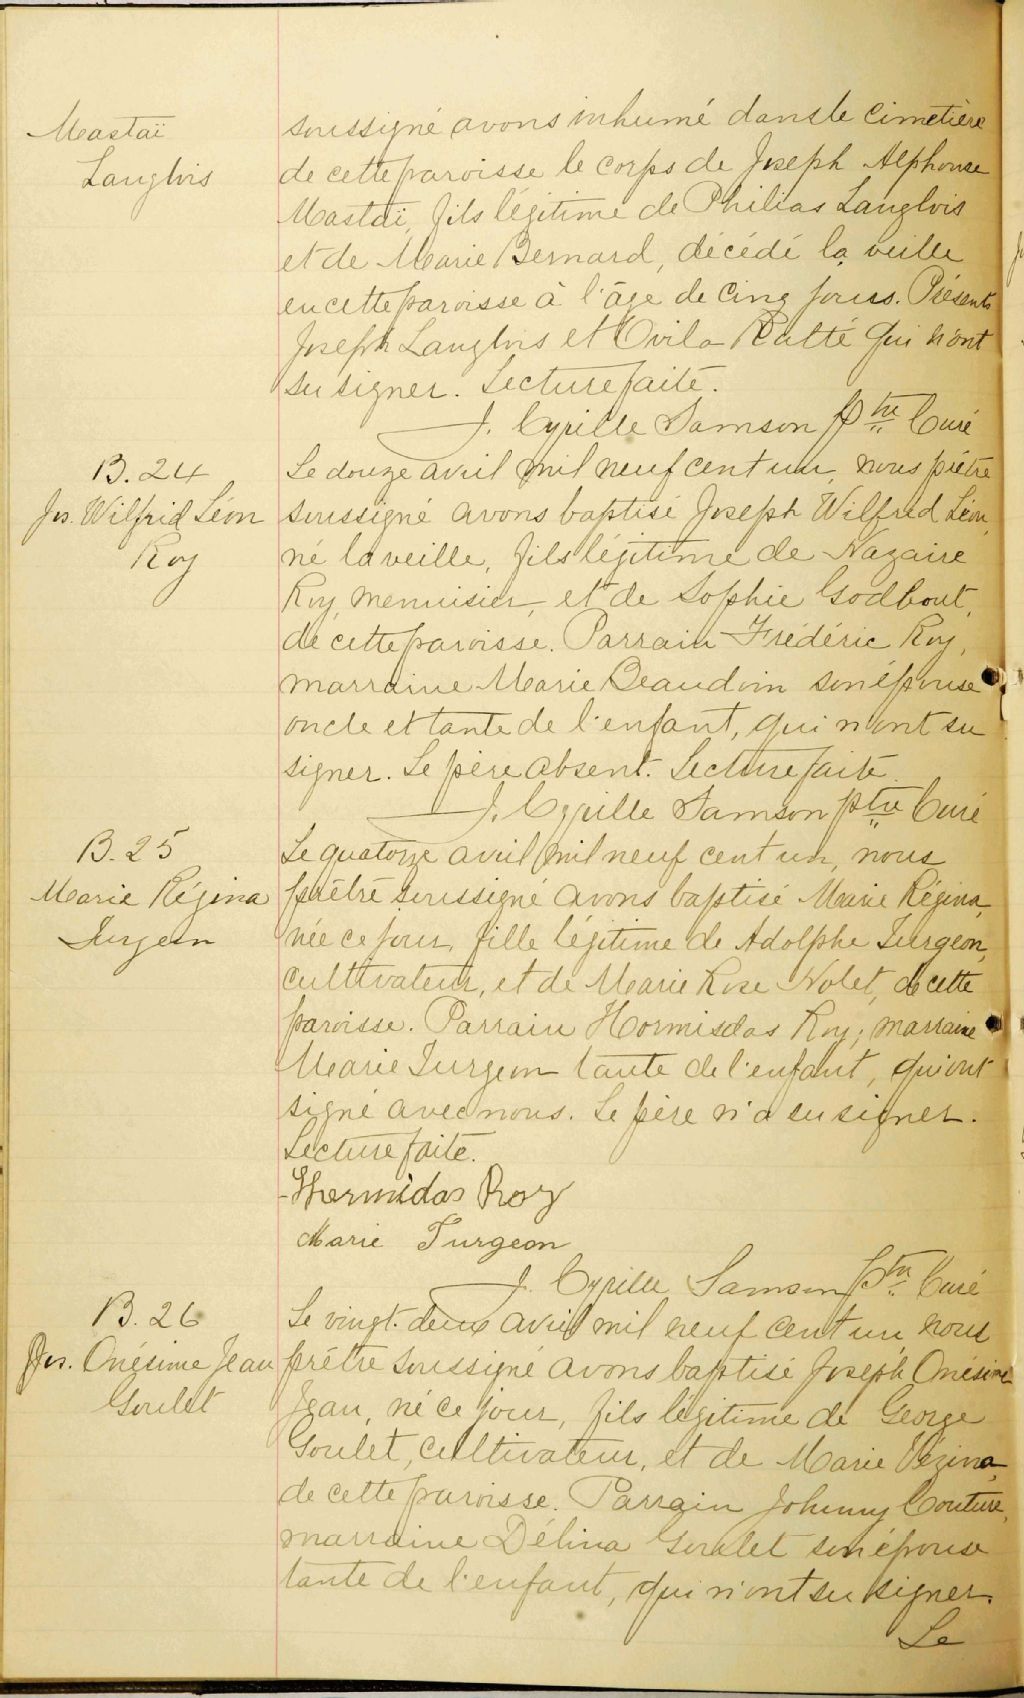 Mastaï
Langlois
soussigné avons inhumé dans le cimetière
de cette paroisse le corps de Joseph Alphonse
Mastaï, fils légitime de Philias Langlois
et de Marie Bernard, décédé la veille
en cette paroisse à l'âge de cinq jours. Présents
Joseph Langlois et Ovila Ratté qui n'ont
su signer. Lecture faite.
J. Cyrille Samson Ptre Curé
B. 24
Jos. Wilfrid Léon
Roy
Le douze avril mil neuf cent un, nous prêtre
soussigné avons baptisé Joseph Wilfrid Léon,
né la veille, fils légitime de Nazaire
Roy, menuisier, et de Sophie Godbout,
de cette paroisse. Parrain Frédéric Roy,
marraine Marie Beaudoin son épouse
oncle et tante de l'enfant, qui n'ont su
signer. Le père absent. Lecture faite.
J. Cyrille Samson ptre Curé
B. 25
Marie Régina
Turgeon
Le quatorze avril mil neuf cent un, nous
prêtre soussigné avons baptisé Marie Régina,
née ce jour, fille légitime de Adolphe Turgeon,
cultivateur, et de Marie Rose Nolet, de cette
paroisse. Parrain Hormisdas Roy; marraine
Marie Turgeon tante de l'enfant, qui ont
signé avec nous. Le père n'a su signer.
Lecture faite.
Hermidas Roy
Marie Turgeon
J. Cyrille Samson Ptre Curé
B. 26
Jos. Onésime Jean
Goulet
Le vingt-deux avril mil neuf cent un nous
prêtre soussigné avons baptisé Joseph Onésime
Jean, né ce jour, fils légitime de George
Goulet, cultivateur, et de Marie Vézina,
de cette paroisse. Parrain Johnny Couture,
marraine Délina Goulet son épouse
tante de l'enfant, qui n'ont su signer.
Le